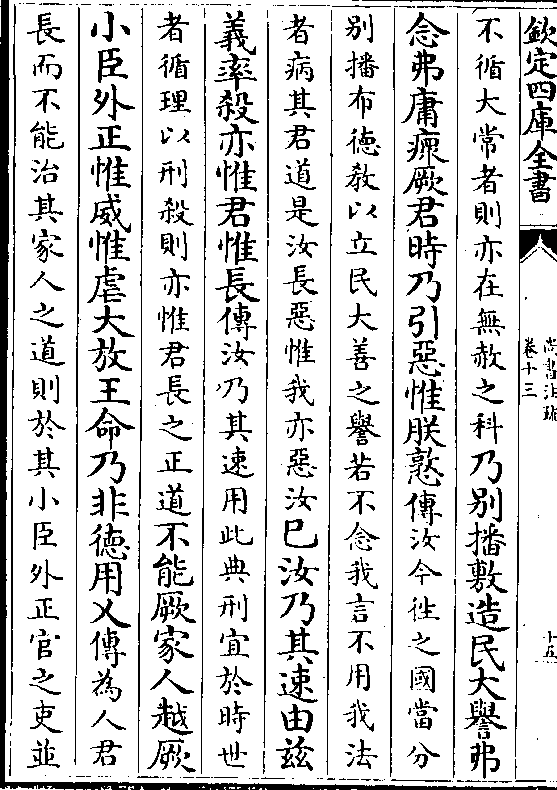 欽定四庫全書
尚書注疏
卷十三
十五
不循大常者則亦在無赦之科乃別播敷造民大譽弗
念弗庸瘝厥君時乃引惡惟朕憝傳汝今往之國當分
別播布德教以立民大善之譽若不念我言不用我法
者病其君道是汝長惡惟我亦惡汝巳汝乃其速由茲
義率殺亦惟君惟長傳汝乃其速用此典刑宜於時世
者循理以刑殺則亦惟君長之正道不能厥家人越厥
小臣外正惟威惟虐大放王命乃非德用乂傳為人君
長而不能治其家人之道則於其小臣外正官之吏並